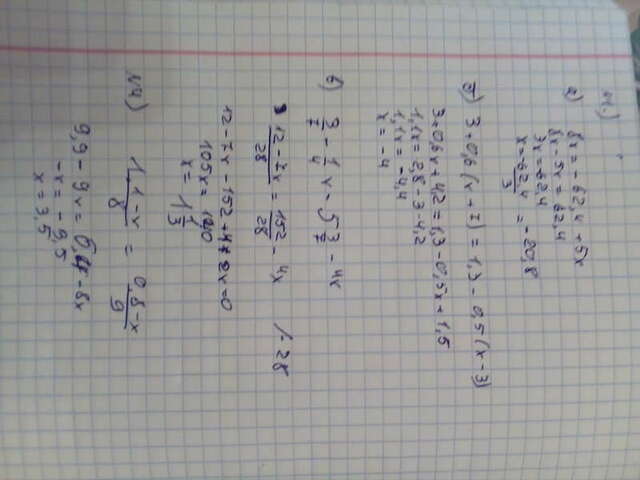 №1.)
а) 8x = -62,4 + 5x
8x - 5x = 62,4
3x = -62,4
x = -62,4/3 = -20,8
б) 3 + 0,6(x + 7) = 1,3 - 0,5(x - 3)
3 + 0,6x + 4,2 = 1,3 - 0,5x + 1,5
1,1x = 2,8 - 3 - 4,2
1,1x = -4,4
x = -4
в) 3/7 - 1/4 x = 5 3/7 - 4x
12 - 7x / 28 = 152 / 28 - 4x /·28
12 - 7x - 152 + 112x = 0
105x = 140
x = 1 1/3
№4) 1,1 - x / 8 = 0,8 - x / 9
9,9 - 9x = 6,4 - 8x
-x = -3,5
x = 3,5